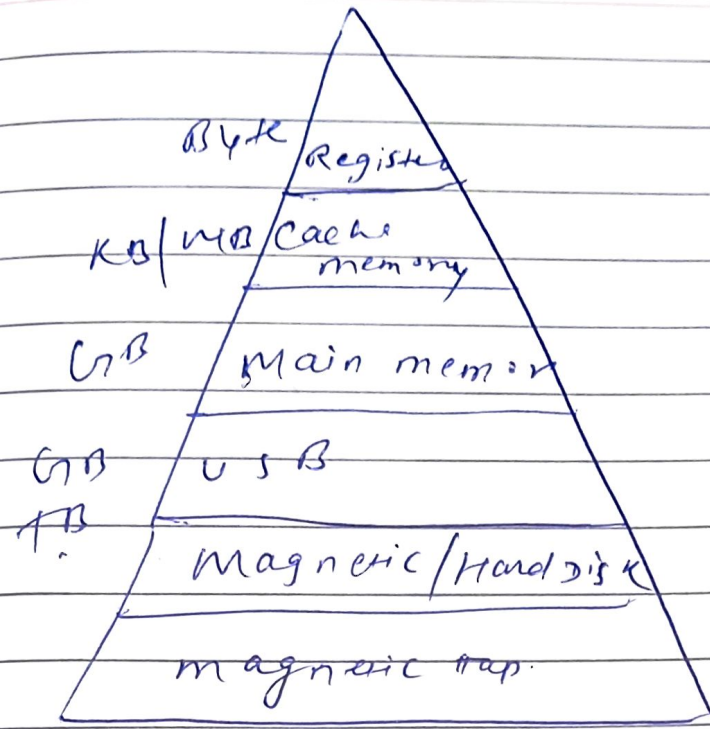 Byte
Register
KB/MB Cache
memory
GB Main memor
GB USB
TB
Magnetic/Hard Disk
magnetic tap.